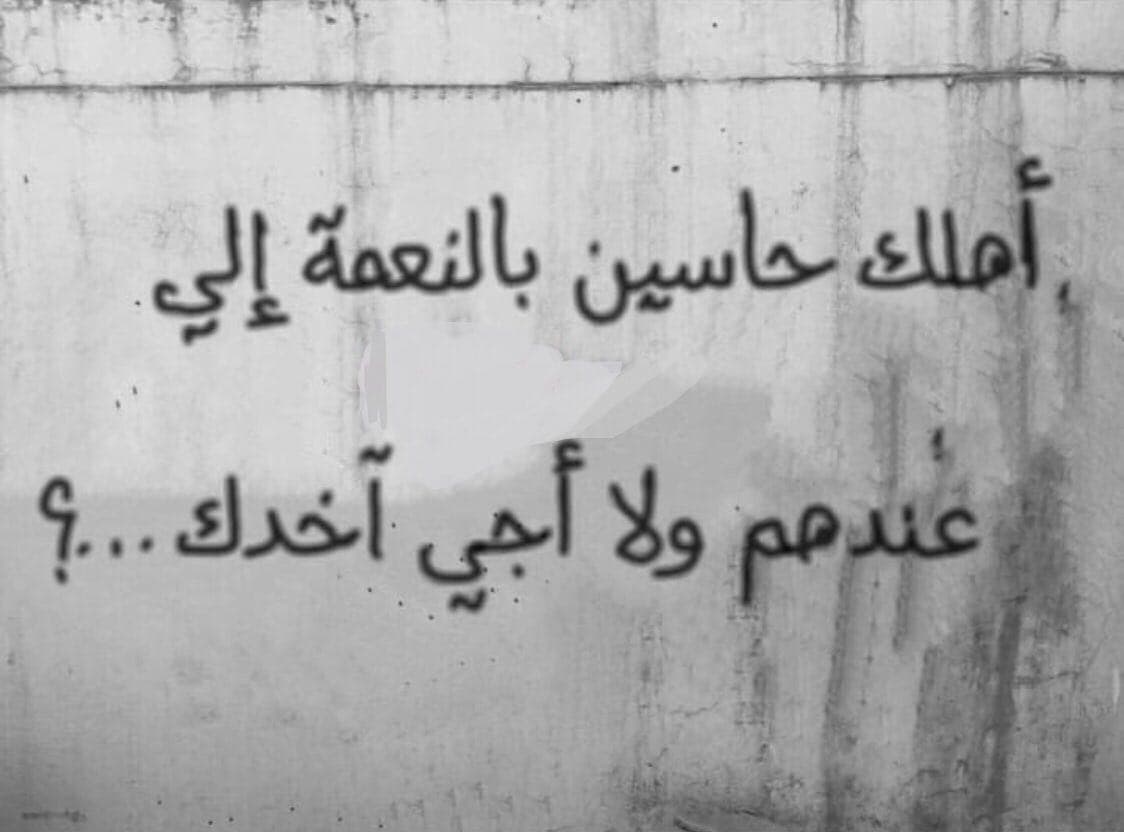 أهلك حاسين بالنعمة إلي
عندهم ولا أجي آخدك...؟